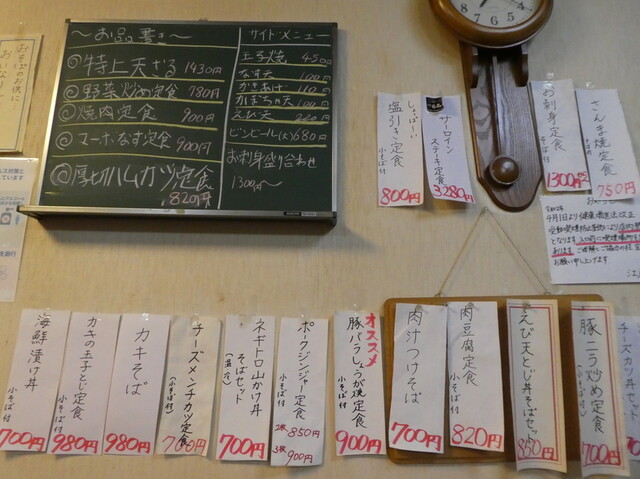 〜お品書き〜
◎特上天ざる 1430円
◎野菜炒め定食 780円
◎焼肉定食 900円
◎マーボなす定食 900円
◎厚切ハムカツ定食 820円
サイドメニュー
玉子焼 450
なす天
かきあげ
かぼちゃ天
えび天
ビンビール(大)680円
お刺身盛り合わせ
1300円〜
しょっぱ〜い
塩引き定食
小そば付
800円
サーロイン
ステーキ定食
3,280円
お刺身定食
そば付
1300円
さんま焼定食
750円
4月1日より健康増進法改正
となります
お願い申し上げます
おそばのお供に
おいなり
海鮮漬け丼
小そば付
700円
カキの玉子とじ定食
小そば付
980円
カキそば
980円
チーズメンチカツ定食
(小そば付)
700円
ネギトロ山かけ丼
そばセット
700円
ポークジンジャー定食
小そば付
2枚 850円
3枚 900円
オススメ
豚バラしょうが焼定食
小そば付
900円
肉汁つけそば
700円
肉豆腐定食
小そば付
820円
えび天とじ丼そばセット
850円
豚ニラ炒め定食
700円
チーズカツ丼